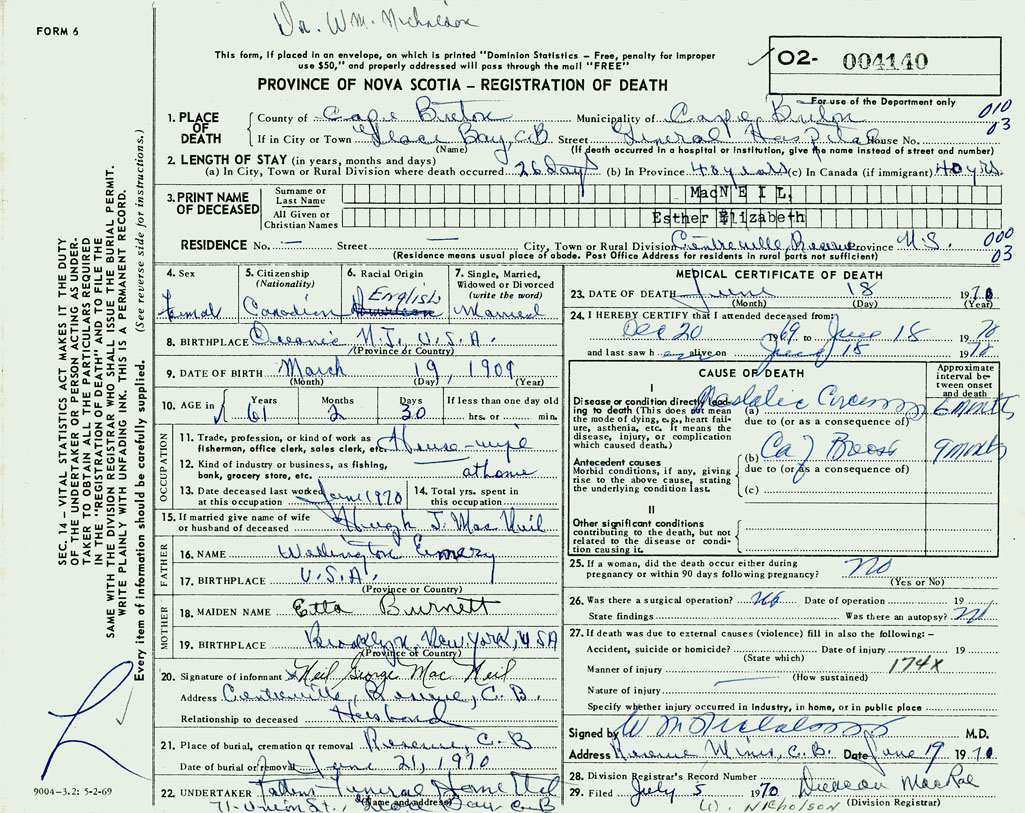 Dr. W.M. Nicholson
FORM 6
This form, if placed in an envelope, on which is printed "Dominion Statistics - Free, penalty for improper
use $50," and properly addressed will pass through the mail "FREE"
02- 004140
For use of the Department only
PROVINCE OF NOVA SCOTIA - REGISTRATION OF DEATH
1. PLACE OF DEATH
County of Cape Breton Municipality of Cape Breton 010
If in City or Town Glace Bay, C.B Street General Hospital House No. 03
(Name) (If death occurred in a hospital or institution, give the name instead of street and number)
2. LENGTH OF STAY (in years, months and days)
(a) In City, Town or Rural Division where death occurred 26 days (b) In Province 40 years (c) In Canada (if immigrant) 40 yrs.
3. PRINT NAME OF DECEASED
Surname or Last Name MacNEIL,
All Given or Christian Names Esther Elizabeth
RESIDENCE No. — Street — City, Town or Rural Division Centreville, Reserve Province N.S. 000
03
(Residence means usual place of abode. Post Office Address for residents in rural parts not sufficient)
4. Sex Femal
5. Citizenship (Nationality) Canadian
6. Racial Origin English
7. Single, Married, Widowed or Divorced (write the word) Married
8. BIRTHPLACE Oceanic N.J., U.S.A.
(Province or Country)
9. DATE OF BIRTH March 19, 1909
(Month) (Day) (Year)
10. AGE in Years 61 Months 2 Days 30 If less than one day old hrs. or min.
OCCUPATION
11. Trade, profession, or kind of work as
fisherman, office clerk, sales clerk, etc. House-wife
12. Kind of industry or business, as fishing,
bank, grocery store, etc. at home
13. Date deceased last worked
at this occupation June 1970
14. Total yrs. spent in
this occupation
15. If married give name of wife
or husband of deceased Hugh J. MacNeil
FATHER
16. NAME Wellington Emery
17. BIRTHPLACE U.S.A.
(Province or Country)
MOTHER
18. MAIDEN NAME Etta Burnett
19. BIRTHPLACE Brooklyn, New York, USA
(Province or Country)
20. Signature of informant Neil George Mac Neil
Address Centreville, Reserve, C.B.
Relationship to deceased Husband
21. Place of burial, cremation or removal Reserve, C.B
Date of burial or removal June 21, 1970
22. UNDERTAKER Funeral Home Ltd
(Name and address)
71-Union St., Glace Bay C.B
MEDICAL CERTIFICATE OF DEATH
23. DATE OF DEATH June 18 1970
(Month) (Day) (Year)
24. I HEREBY CERTIFY that I attended deceased from:
Oct 20 1969 to June 18 1970
and last saw her alive on June 18 1970
CAUSE OF DEATH
Approximate interval between onset and death
I
Disease or condition directly leading
to death (This does not mean
the mode of dying, e.g., heart failure,
asthenia, etc. It means the
disease, injury, or complication
which caused death.)
(a) 6 months
due to (or as a consequence of)
(b) Ca of Breast 9 months
due to (or as a consequence of)
(c)
Antecedent causes
Morbid conditions, if any, giving
rise to the above cause, stating
the underlying condition last.
II
Other significant conditions
contributing to the death, but not
related to the disease or condition
causing it.
25. If a woman, did the death occur either during
pregnancy or within 90 days following pregnancy? No
(Yes or No)
26. Was there a surgical operation? No Date of operation 19
State findings Was there an autopsy? No
27. If death was due to external causes (violence) fill in also the following: -
Accident, suicide or homicide? Date of injury 19
(State which)
Manner of injury 174X
(How sustained)
Nature of injury
Specify whether injury occurred in industry, in home, or in public place
Signed by W M Nicholson M.D.
Address Reserve Mines, C.B. Date June 19 1970
28. Division Registrar's Record Number
29. Filed July 5 1970 Duncan MacRae
(Division Registrar)
NICHOLSON
SEC. 14 - VITAL STATISTICS ACT MAKES IT THE DUTY
OF THE UNDERTAKER OR PERSON ACTING AS UNDER-
TAKER TO OBTAIN ALL THE PARTICULARS REQUIRED
IN THE "REGISTRATION OF DEATH" AND TO FILE THE
SAME WITH THE DIVISION REGISTRAR WHO SHALL ISSUE THE BURIAL PERMIT.
WRITE PLAINLY WITH UNFADING INK. THIS IS A PERMANENT RECORD.
Every item of information should be carefully supplied. (See reverse side for instructions.)
9004-3.2: 5-2-69